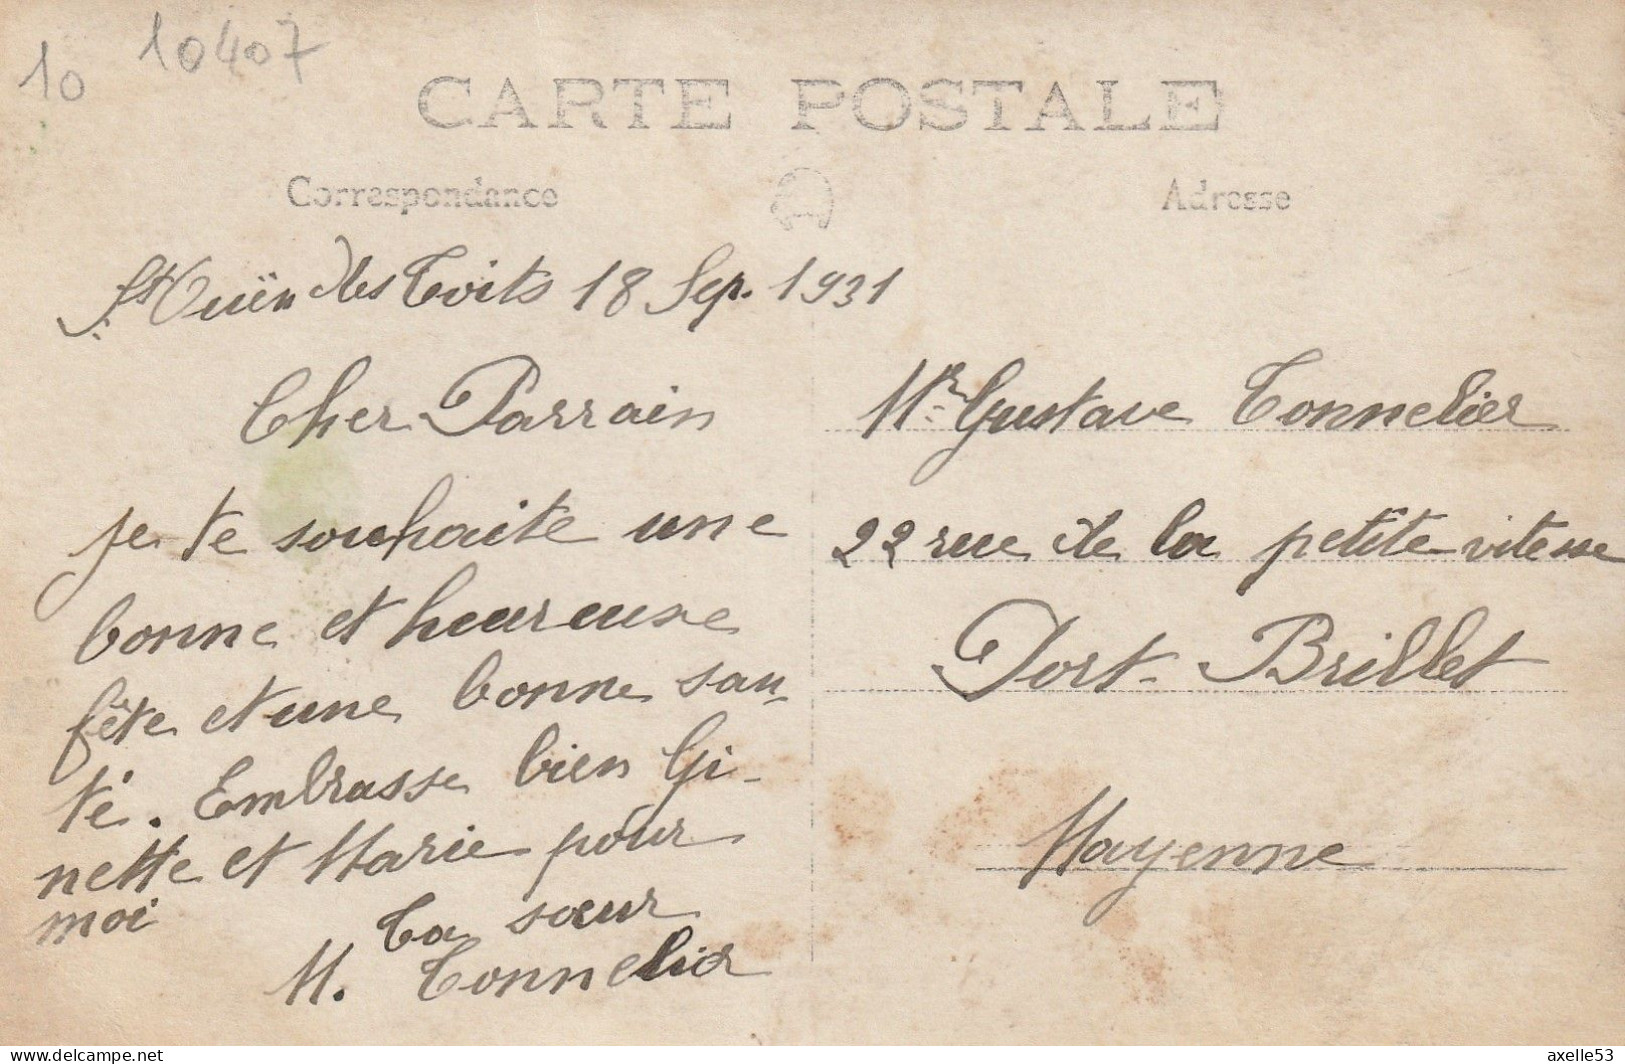 10 10407
CARTE POSTALE
Correspondance
Adresse
St Ouën des Toits 18 Sep. 1931
Cher Parrain
je te souhaite une
bonne et heureuse
fête et une bonne san-
té. Embrasse bien Gi-
nette et Marie pour
moi
Ta sœur
M. Tonnelier
Mr Gustave Tonnelier
22 rue de la petite vitesse
Port-Brillet
Mayenne
www.delcampe.net
axelle53